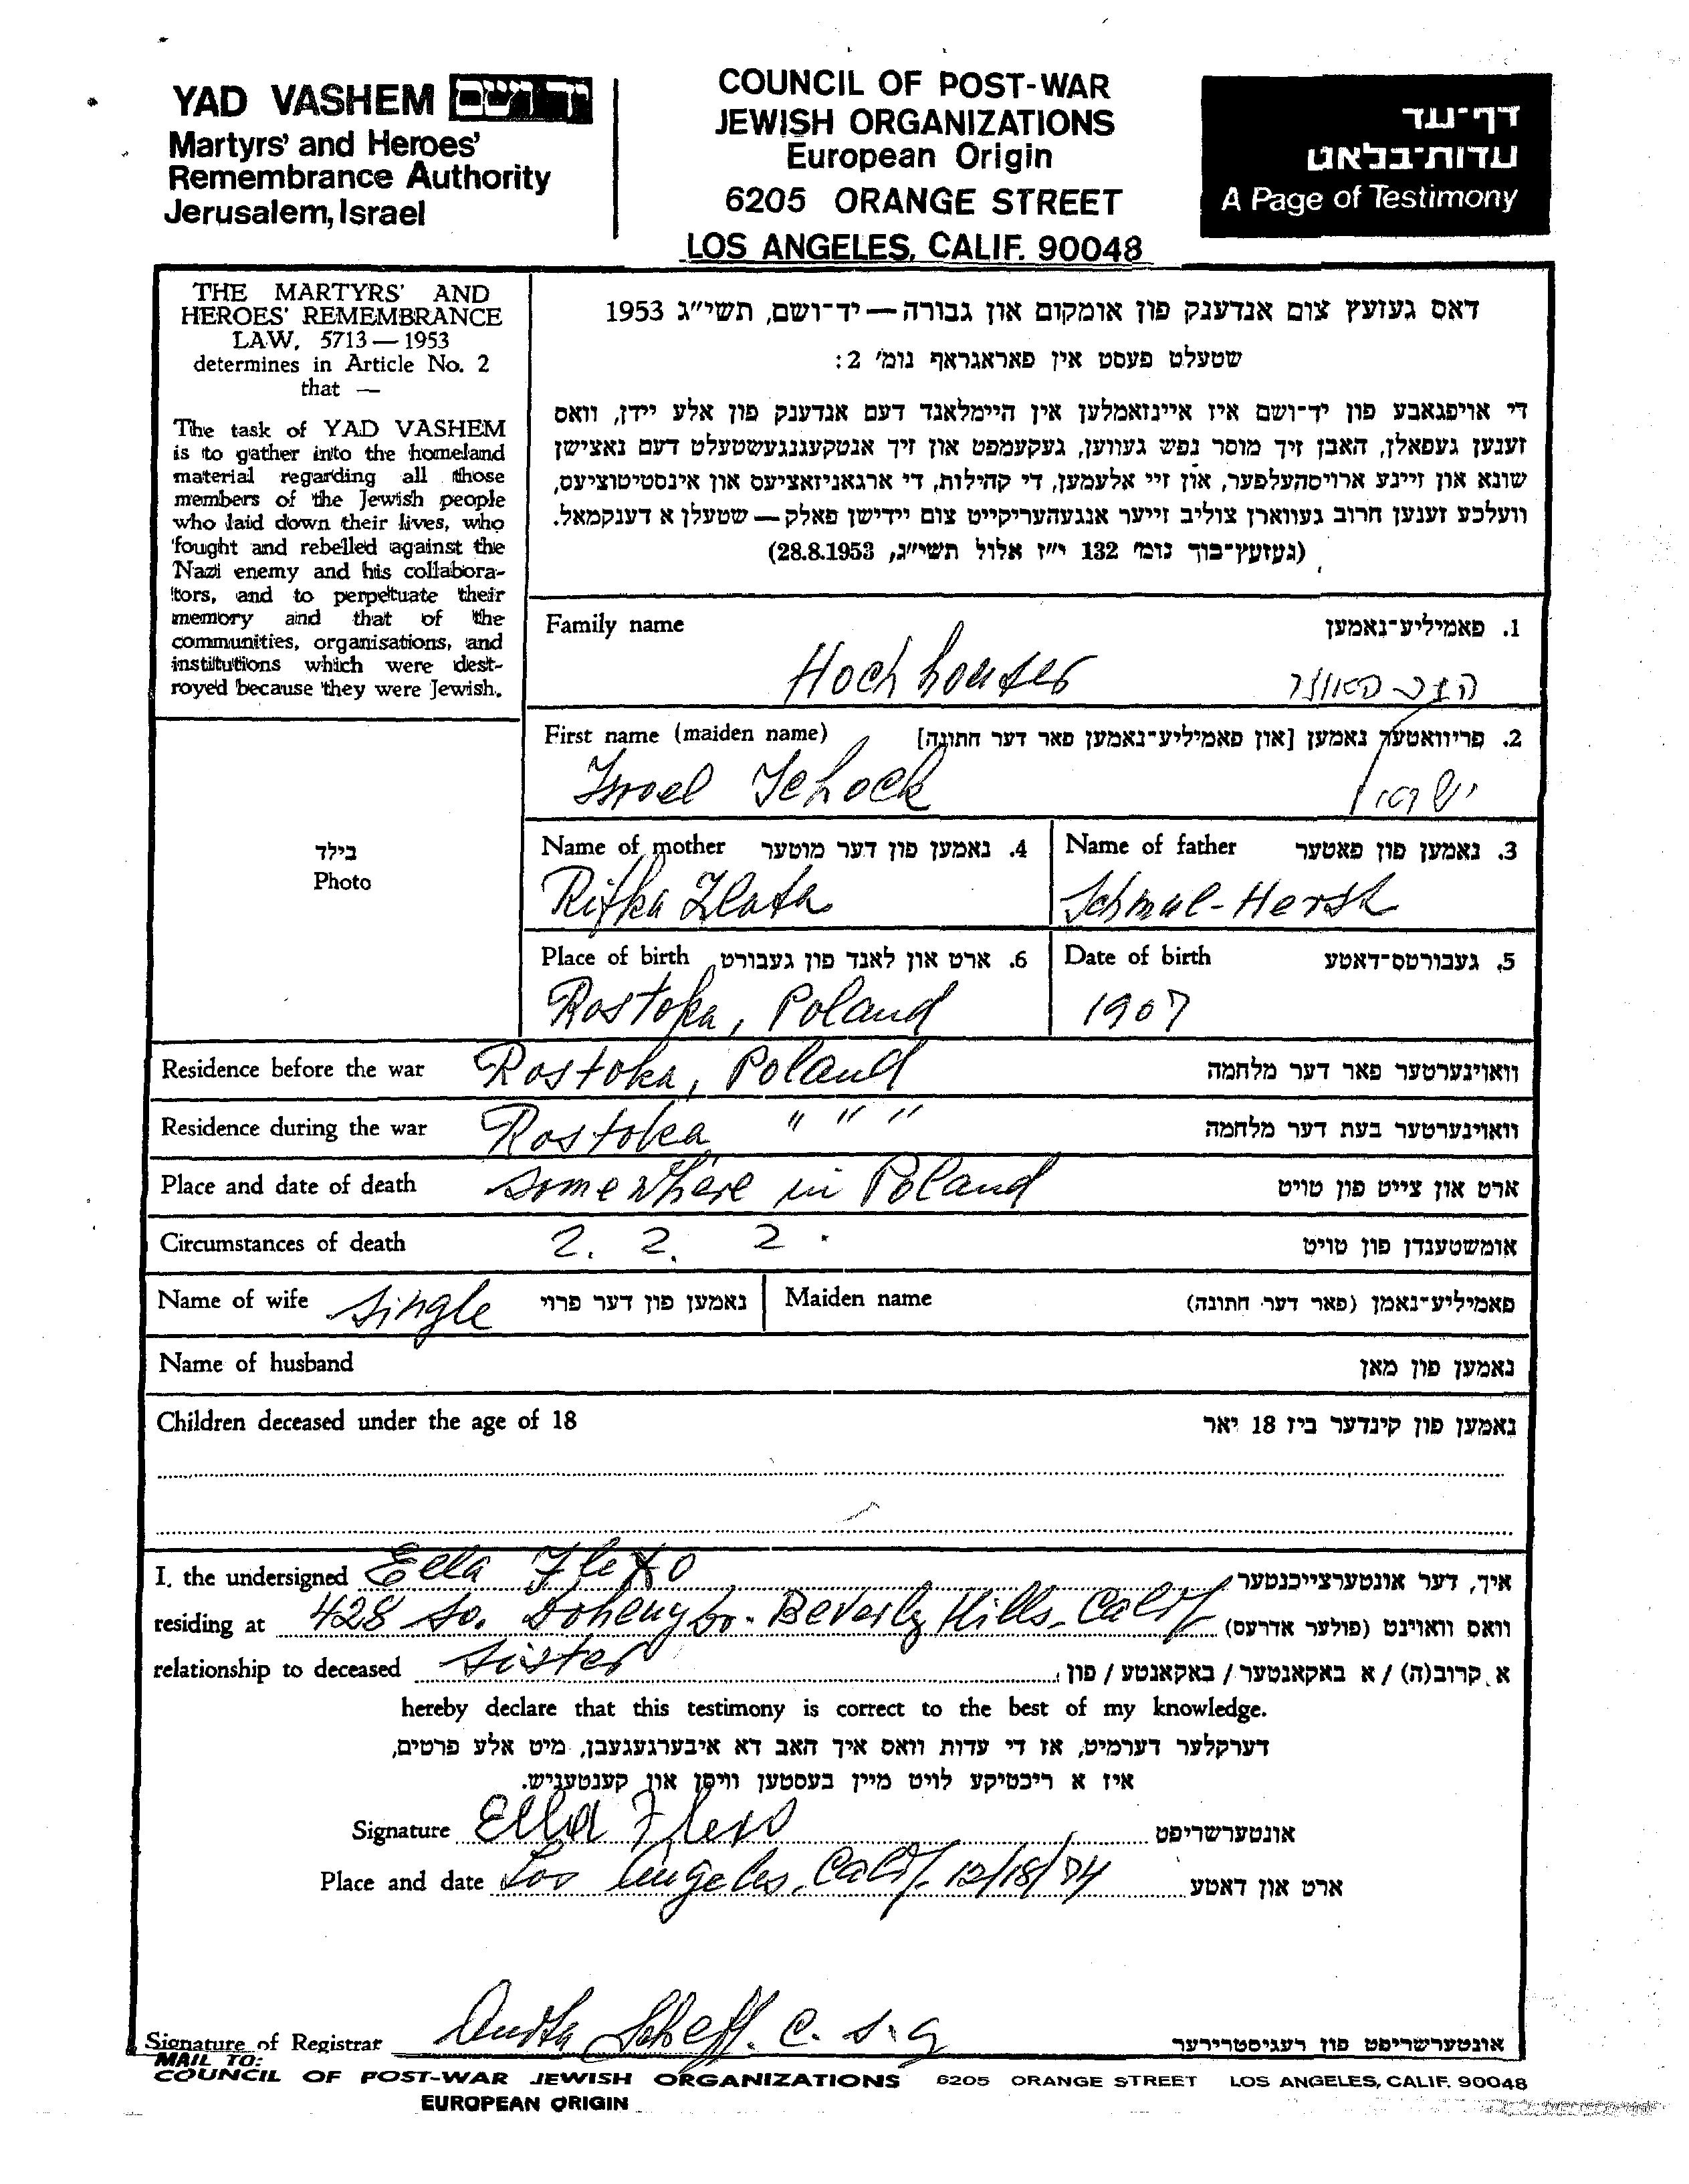 YAD VASHEM יד ושם
Martyrs' and Heroes'
Remembrance Authority
Jerusalem, Israel
COUNCIL OF POST-WAR
JEWISH ORGANIZATIONS
European Origin
6205 ORANGE STREET
LOS ANGELES, CALIF. 90048
דף-עד
עדות-בלאט
A Page of Testimony
THE MARTYRS' AND
HEROES' REMEMBRANCE
LAW, 5713 — 1953
determines in Article No. 2
that —
The task of YAD VASHEM
is to gather into the homeland
material regarding all those
members of the Jewish people
who laid down their lives, who
fought and rebelled against the
Nazi enemy and his collabora-
tors, and to perpetuate their
memory and that of the
communities, organisations, and
institutions which were dest-
royed because they were Jewish.
דאס געזעץ צום אנדענק פון אומקום און גבורה — יד-ושם, תשי״ג 1953
שטעלט פעסט אין פאראגראף נומ׳ 2:
די אויפגאבע פון יד-ושם איז איינזאמלען אין היימלאנד דעם אנדענק פון אלע יידן, וואס
זענען געפאלן, האבן זיך מוסר נפש געווען, געקעמפט און זיך אנטקעגנגעשטעלט דעם נאצישן
שונא און זיינע ארויסהעלפער, און זיי אלעמען, די קהילות, די ארגאניזאציעס און אינסטיטוציעס,
וועלכע זענען חרוב געווארן צוליב זייער אנגעהעריקייט צום יידישן פאלק — שטעלן א דענקמאל.
(געזעץ-בוך נומ׳ 132 י״ז אלול תשי״ג, 28.8.1953)
Family name 1. פאמיליע-נאמען
Hochhouser
First name (maiden name) 2. פריוואטער נאמען [און פאמיליע-נאמען פאר דער חתונה]
Isroel Schock ישראל
בילד
Photo
Name of mother 4. נאמען פון דער מוטער Name of father 3. נאמען פון פאטער
Rifka Zlata Schmul-Hersh
Place of birth 6. ארט און לאנד פון געבורט Date of birth 5. געבורטס-דאטע
Rostoka, Poland 1907
Residence before the war Rostoka, Poland וואוינערטער פאר דער מלחמה
Residence during the war Rostoka " " " וואוינערטער בעת דער מלחמה
Place and date of death somewhere in Poland ארט און צייט פון טויט
Circumstances of death ?. ?. ?. אומשטענדן פון טויט
Name of wife single נאמען פון דער פרוי Maiden name פאמיליע-נאמן (פאר דער חתונה)
Name of husband נאמען פון מאן
Children deceased under the age of 18 נאמען פון קינדער ביז 18 יאר
I, the undersigned Ella Flexo איך, דער אונטערצייכנטער
residing at 428 So. Doheny Dr. Beverly Hills, Calif. וואס וואוינט (פולער אדרעס)
relationship to deceased sister א קרוב(ה) / א באקאנטער / באקאנטע / פון
hereby declare that this testimony is correct to the best of my knowledge.
דערקלער דערמיט, אז די עדות וואס איך האב דא איבערגעגעבן, מיט אלע פרטים,
איז א ריכטיקע לויט מיין בעסטען וויסן און קענטעניש.
Signature Ella Flexo אונטערשריפט
Place and date Los Angeles, Calif. 12/18/74 ארט און דאטע
Signature of Registrar אונטערשריפט פון רעגיסטרירער
MAIL TO:
COUNCIL OF POST-WAR JEWISH ORGANIZATIONS 6205 ORANGE STREET LOS ANGELES, CALIF. 90048
EUROPEAN ORIGIN